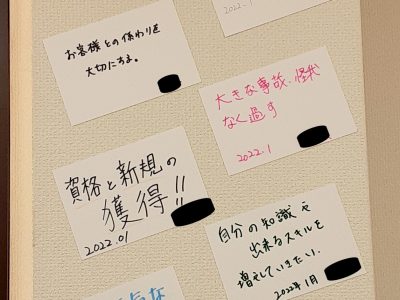 お客様との係わりを
大切にする。
2022.
大きな事故・怪我
なく過す
2022.1
資格と新規の
獲得!!
2022.01
自分の知識や
出来るスキルを
増やしていきたい。
2022年1月